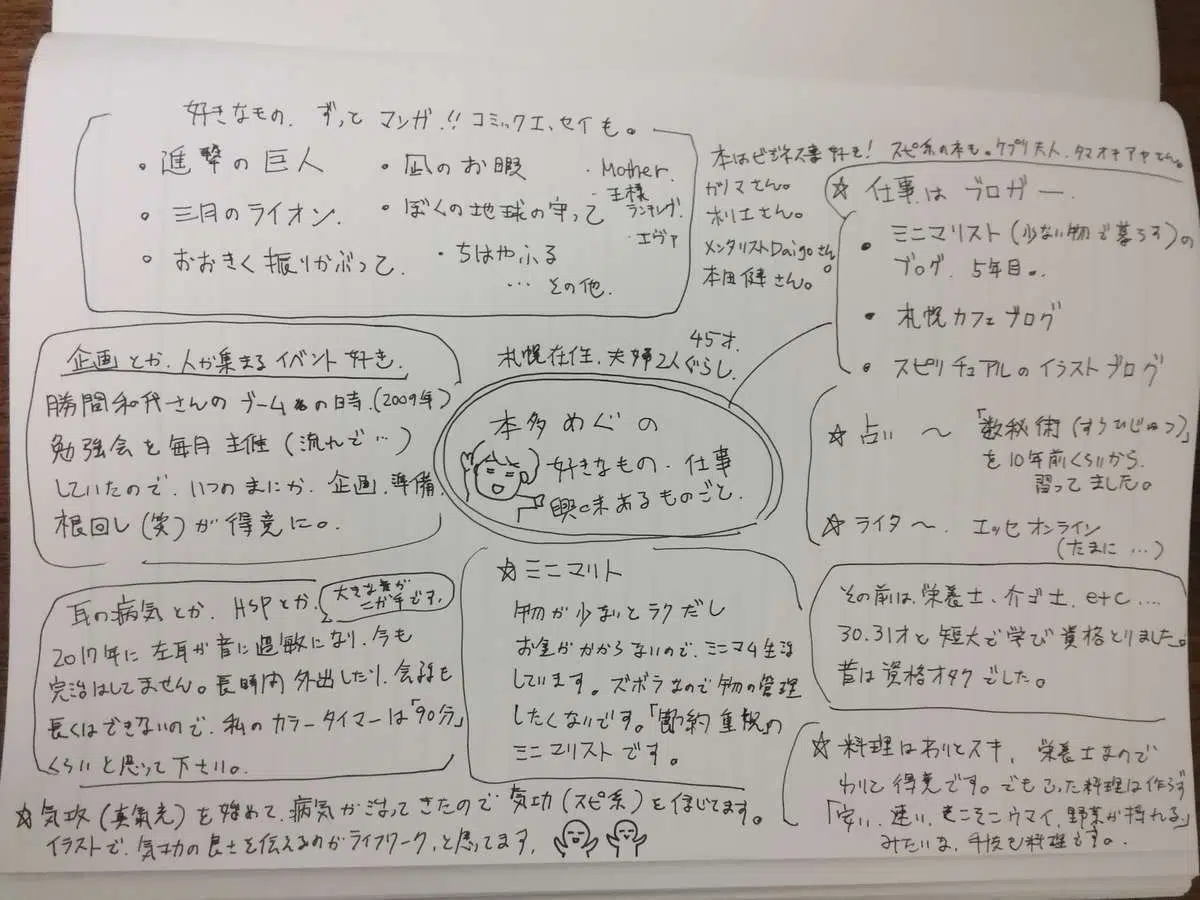 好きなもの、ずっと マンガ!! コミックエッセイも。
・進撃の巨人
・三月のライオン
・おおきく振りかぶって
・凪のお暇
・ぼくの地球の守って
・ちはやふる
… その他
・Mother
・王様
ランキング
・エヴァ
本はビジネス書好き! スピ系の本も。ケプリ夫人、タマオキアヤさん。
ガリマさん。
ホリエさん。
メンタリストDaigoさん。
本田健さん。
☆ 仕事は ブロガー
・ミニマリスト (少ない物で暮らす)の
ブログ、5年目。
・札幌カフェブログ
・スピリチュアルのイラストブログ
☆ 占い 〜 「数秘術 (すうひじゅつ)」
を10年前くらいから
習ってました。
☆ ライター 〜 エッセオンライン
(たまに …)
企画とか、人が集まるイベント好き。
勝間和代さんのブームの時、(2009年)
勉強会を毎月主催 (流れで…)
していたので、いつのまにか、企画、準備、
根回し (笑) が得意に。
45才、
札幌在住、夫婦2人ぐらし。
本多めぐの
好きなもの・仕事
興味あるものごと。
耳の病気とか、HSPとか、
大きな音が
ニガ手です。
2017年に左耳が音に過敏になり、今も
完治はしてません。長時間外出したり、会話も
長くはできないので、私のカラータイマーは「90分」
くらいと思って下さい。
☆ ミニマリト
物が少ないとラクだし
お金がかからないので、ミニマム生活
しています。ズボラなので物の管理
したくないです。「節約重視」の
ミニマリストです。
その前は、栄養士、介ゴ士、etc ….
30.31才と短大で学び資格とりました。
昔は資格オタクでした。
☆ 料理はわりとスキ、栄養士なので
わりと得意です。でもこった料理は作らず
「安い、速い、そこそこウマイ、野菜が採れる」
みたいな、手抜き料理です。
☆ 気功 (真氣光) を始めて、病気が治ってきたので 気功 (スピ系) を信じてます。
イラストで、気功の良さを伝えるのがライフワーク、と思ってます。